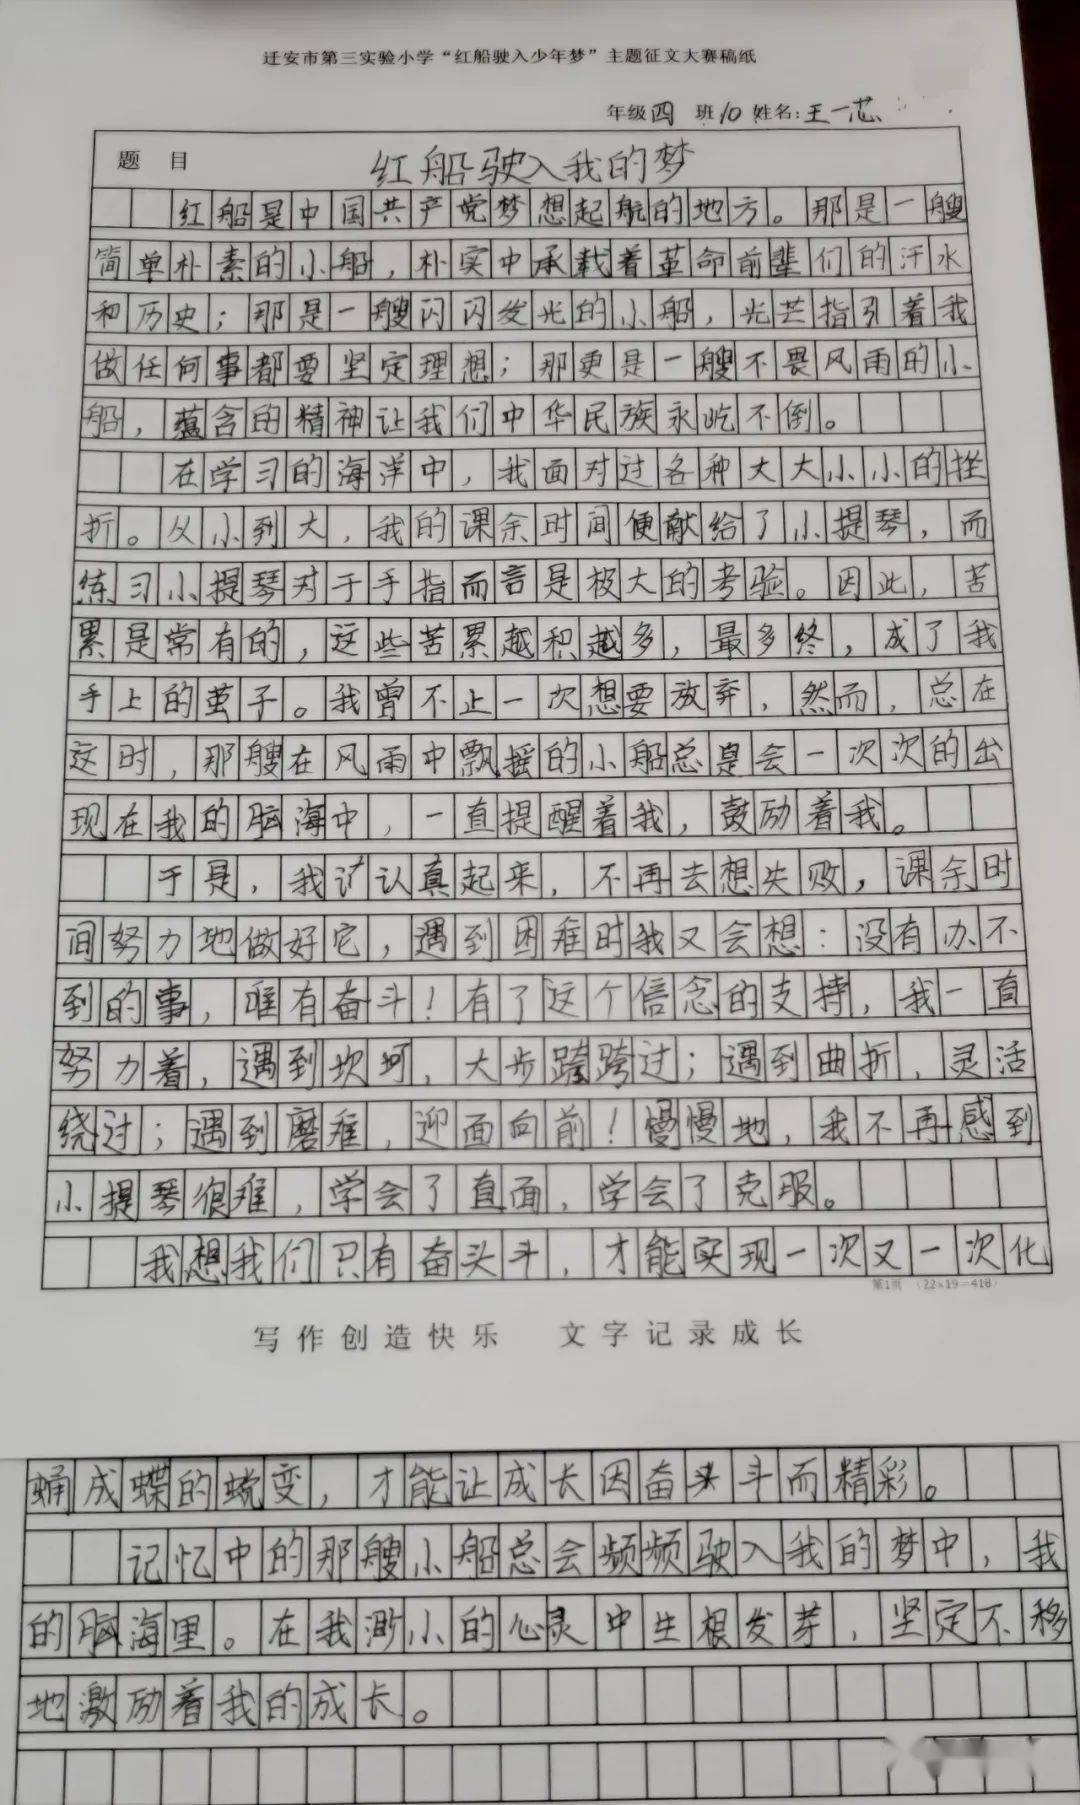 迁安市第三实验小学“红船驶入少年梦”主题征文大赛稿纸
年级四 班10 姓名:王一芯
题目 红船驶入我的梦
红船是中国共产党梦想起航的地方。那是一艘
简单朴素的小船，朴实中承载着革命前辈们的汗水
和历史；那是一艘闪闪发光的小船，光芒指引着我
做任何事都要坚定理想；那更是一艘不畏风雨的小
船，蕴含的精神让我们中华民族永屹不倒。
在学习的海洋中，我面对过各种大大小小的挫
折。从小到大，我的课余时间便献给了小提琴，而
练习小提琴对于手指而言是极大的考验。因此，苦
累是常有的，这些苦累越积越多，最多终，成了我
手上的茧子。我曾不止一次想要放弃，然而，总在
这时，那艘在风雨中飘摇的小船总是会一次次的出
现在我的脑海中，一直提醒着我，鼓励着我。
于是，我认真起来，不再去想失败，课余时
间努力地做好它，遇到困难时我又会想：没有办不
到的事，唯有奋斗！有了这个信念的支持，我一直
努力着，遇到坎坷，大步跨跨过；遇到曲折，灵活
绕过；遇到磨难，迎面向前！慢慢地，我不再感到
小提琴很难，学会了直面，学会了克服。
我想我们只有奋头斗，才能实现一次又一次化
第1页 （22×19=418）
写作创造快乐 文字记录成长
蛹成蝶的蜕变，才能让成长因奋头斗而精彩。
记忆中的那艘小船总会频频驶入我的梦中，我
的脑海里。在我渺小的心灵中生根发芽，坚定不移
地激励着我的成长。